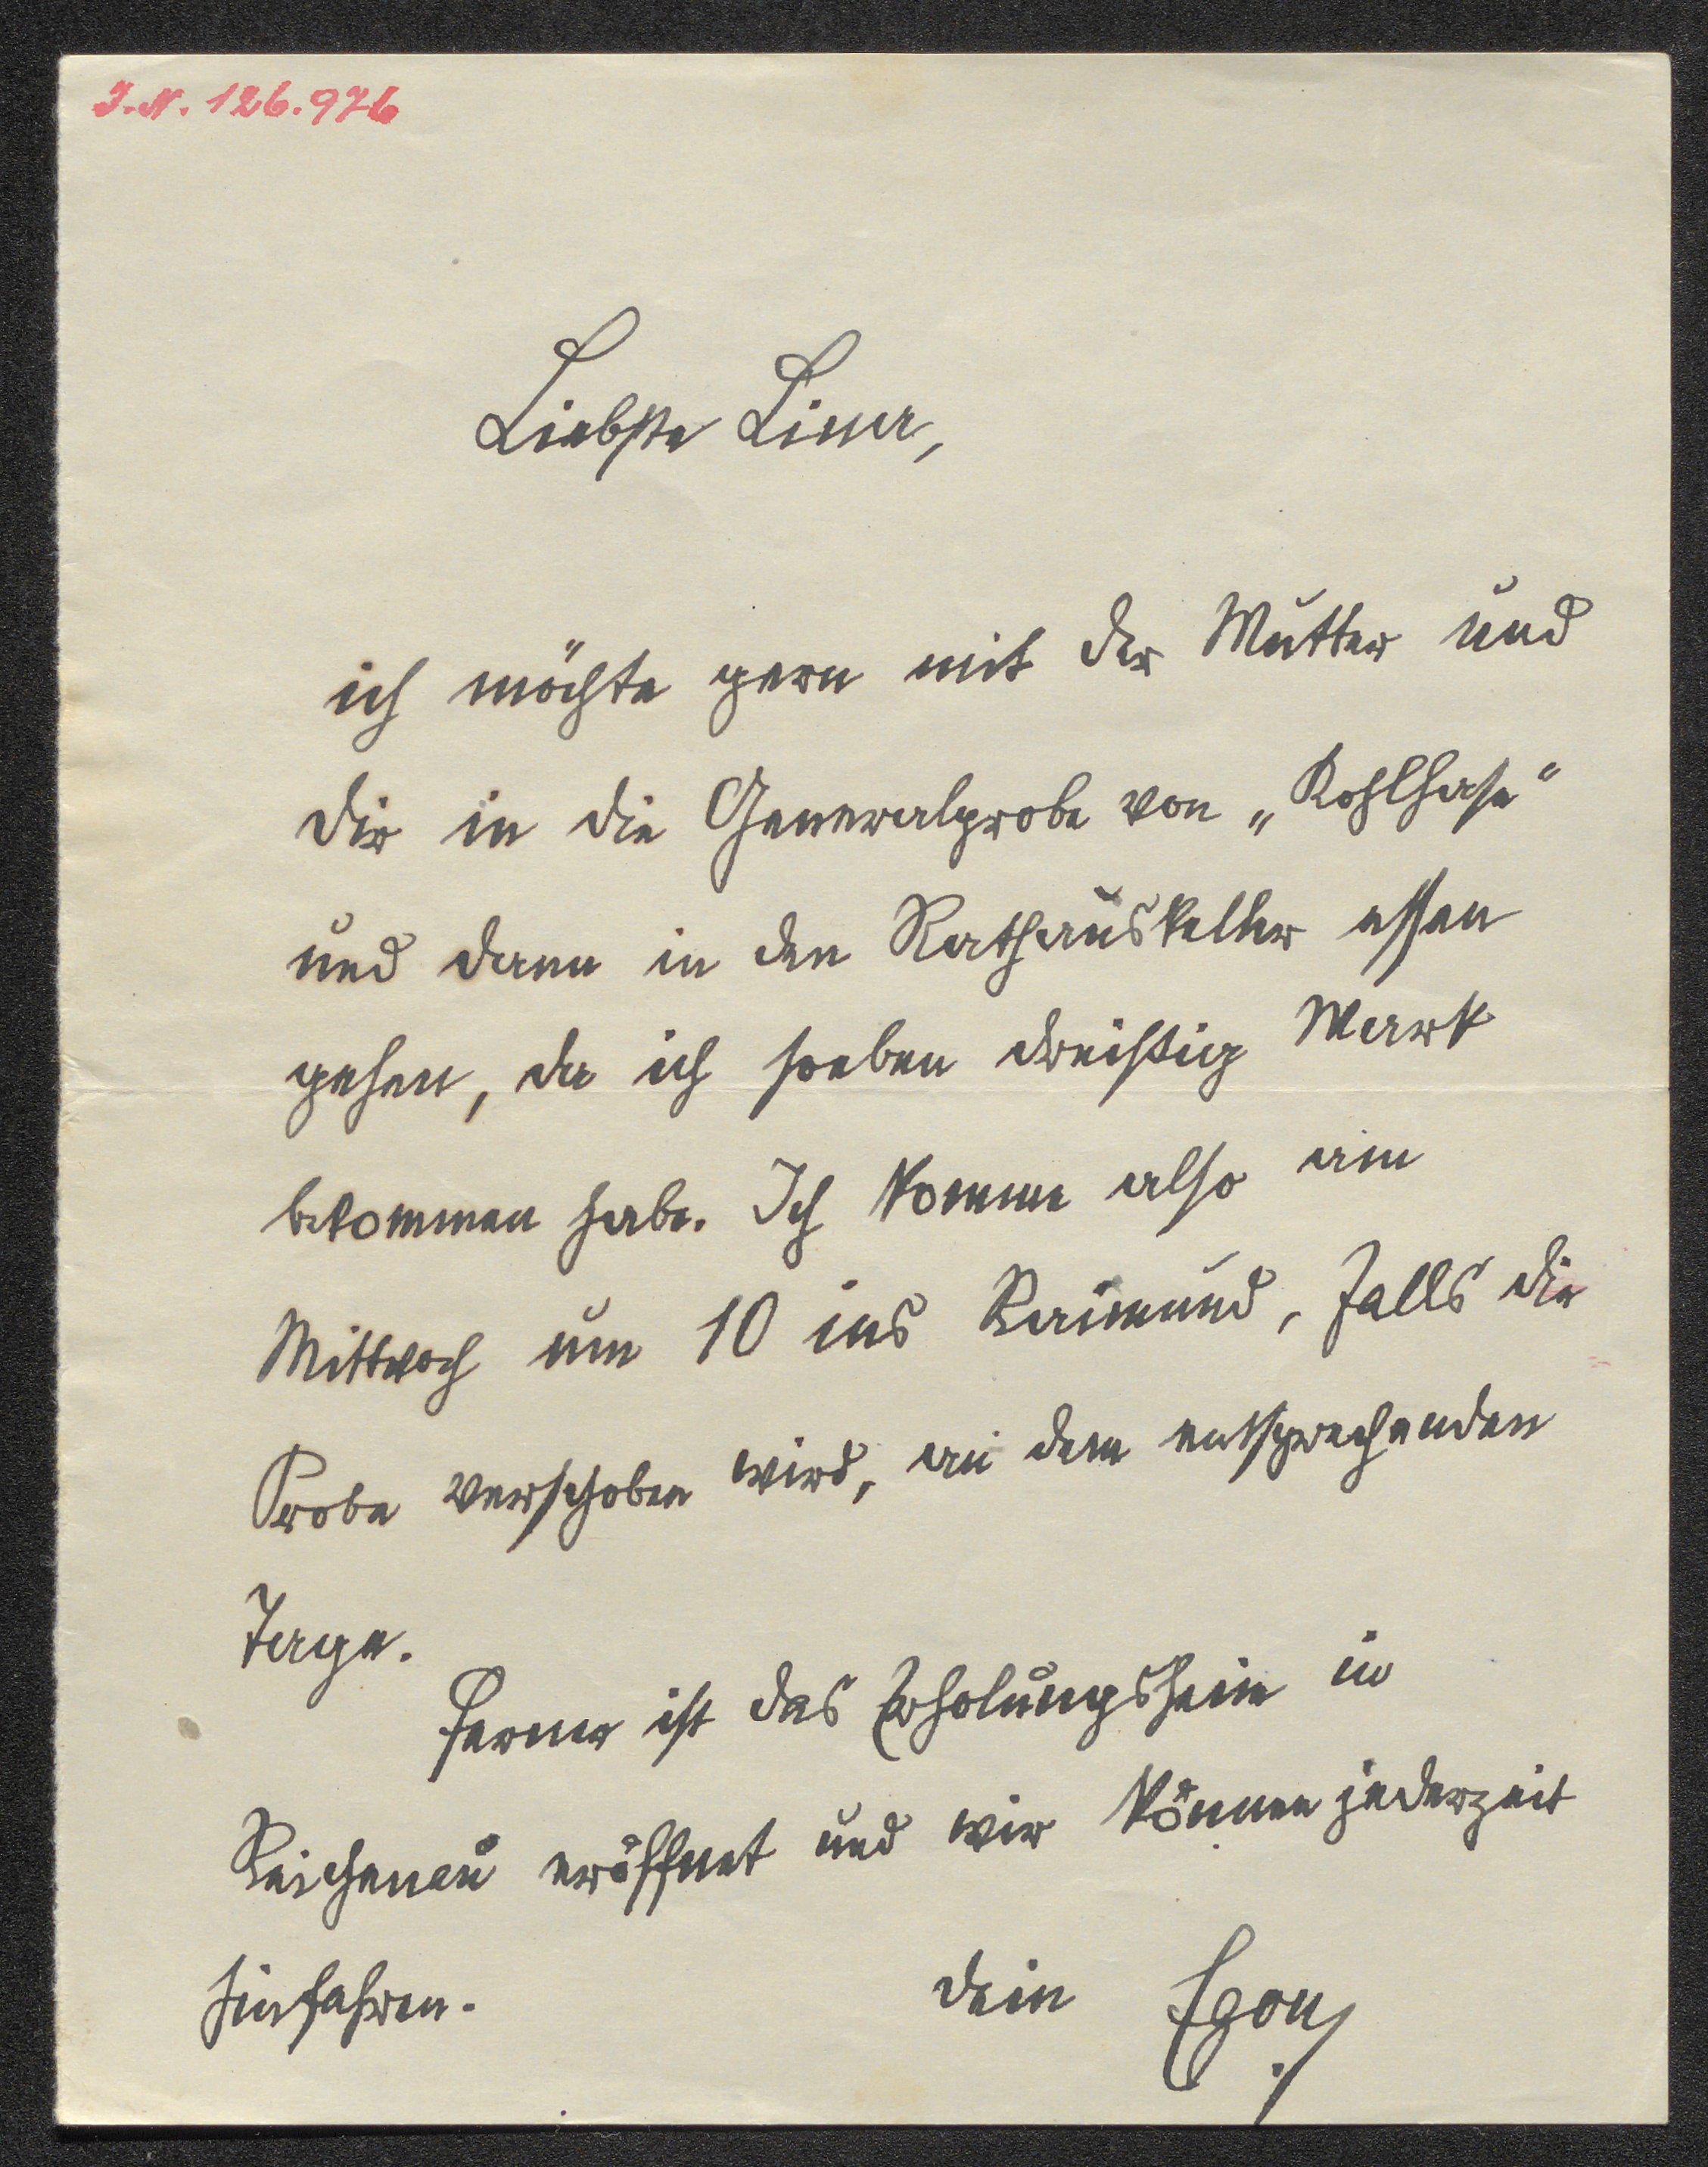 I.N. 126.976
Liebste Lina,
ich möchte gern mit der Mutter und
dir in die Generalprobe von „Kohlhase“
und dann in den Rathauskeller essen
gehen, da ich soeben dreißig Mark
bekommen habe. Ich komme also am
Mittwoch um 10 ins Raimund, falls die
Probe verschoben wird, an dem entsprechenden
Tage.
Ferner ist das Erholungsheim in
Reichenau eröffnet und wir können jederzeit
hinfahren.
dein Egon